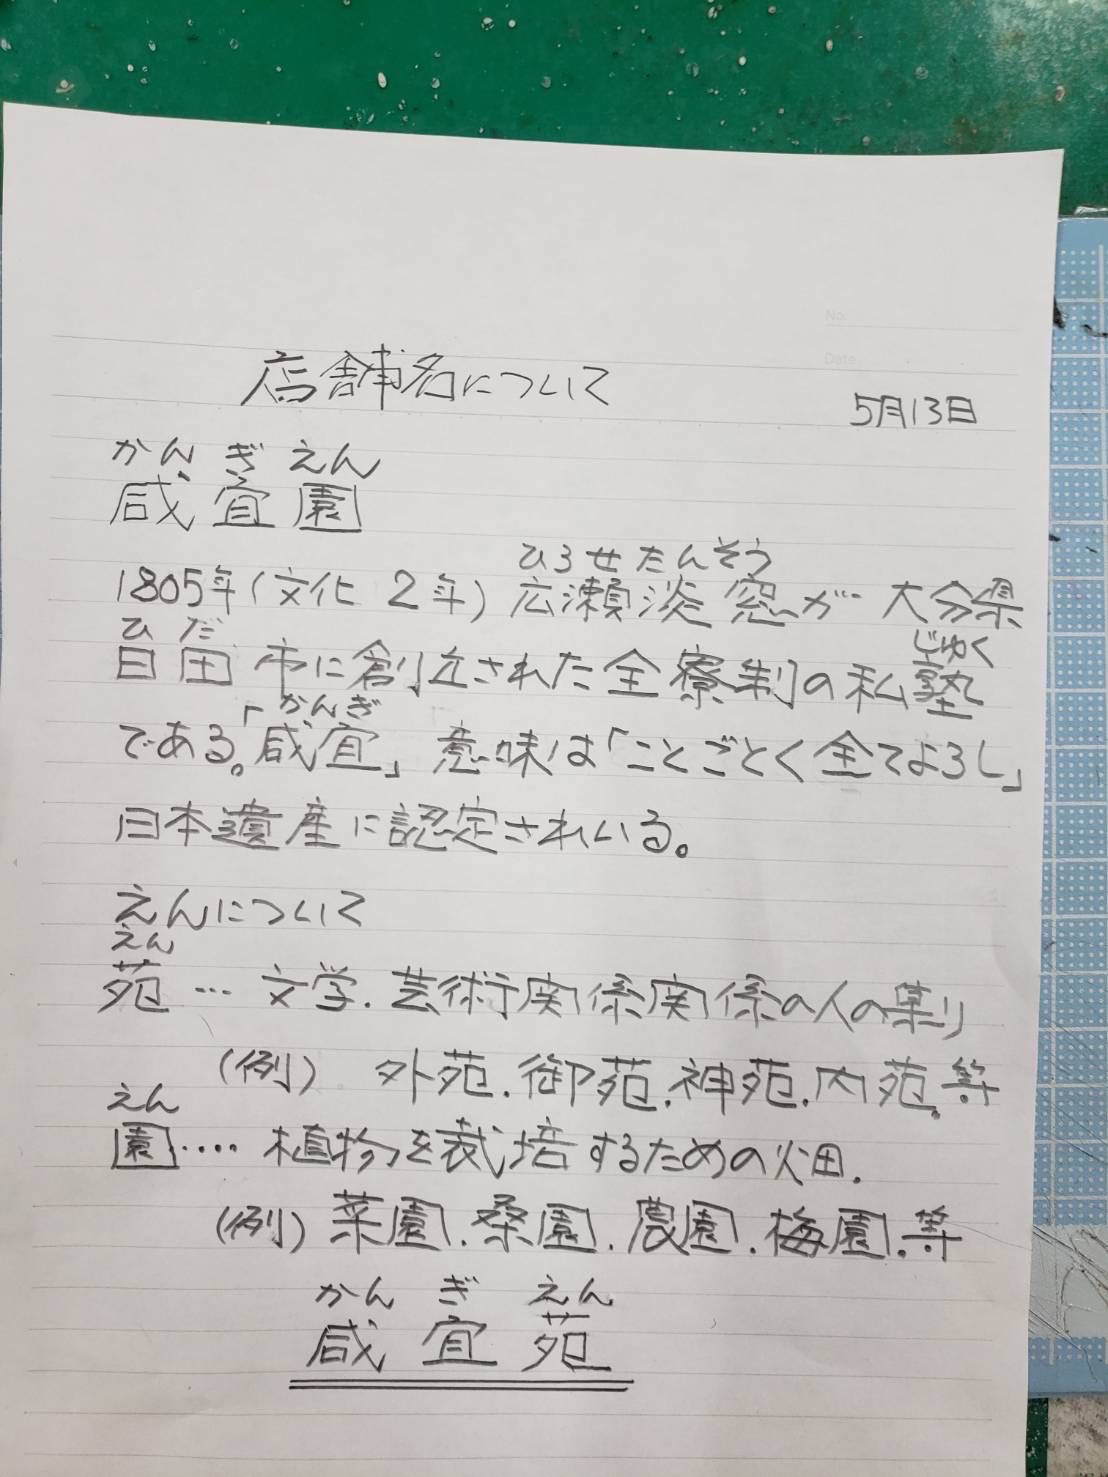 No.
Date
店舗名について
5月13日
かん ぎ えん
咸宜園
ひろせたんそう
1805年(文化2年)広瀬淡窓が大分県
ひ だ
じゅく
日田市に創立された全寮制の私塾
かんぎ
である。「咸宜」意味は「ことごとく全てよろし」
日本遺産に認定されいる。
えんについて
えん
苑…文学.芸術関係関係の人の集り
(例) 外苑.御苑.神苑.内苑.等
えん
園‥‥植物を栽培するための畑.
(例)菜園.桑園.農園.梅園.等
かん ぎ えん
咸宜苑